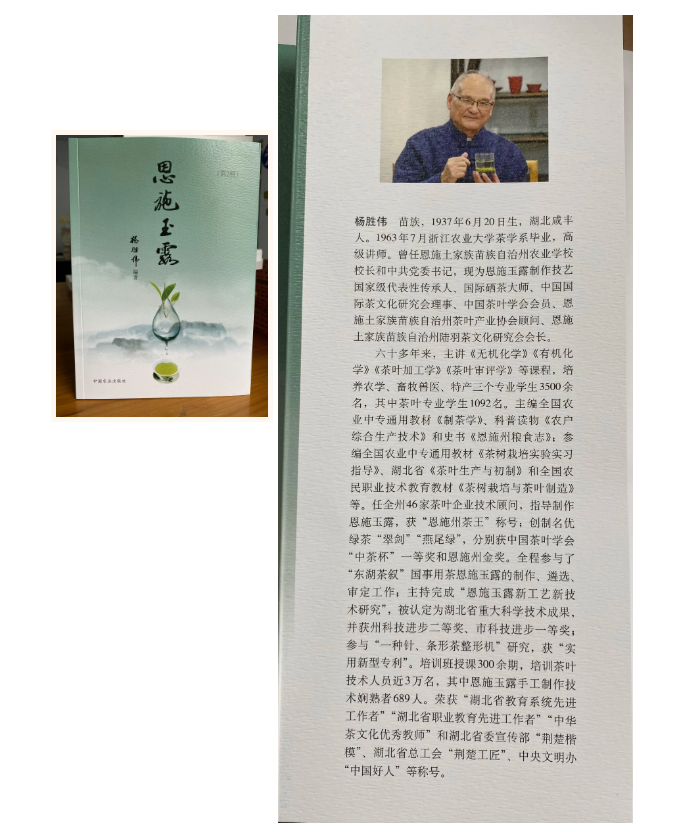 恩施玉露
(第2版)
杨胜伟 编著
中国农业出版社
杨胜伟 苗族，1937年6月20日生，湖北咸丰
人。1963年7月浙江农业大学茶学系毕业，高
级讲师。曾任恩施土家族苗族自治州农业学校
校长和中共党委书记，现为恩施玉露制作技艺
国家级代表性传承人、国际硒茶大师、中国国
际茶文化研究会理事、中国茶叶学会会员、恩
施土家族苗族自治州茶叶产业协会顾问、恩施
土家族苗族自治州陆羽茶文化研究会会长。
六十多年来，主讲《无机化学》《有机化
学》《茶叶加工学》《茶叶审评学》等课程，培
养农学、畜牧兽医、特产三个专业学生3500余
名，其中茶叶专业学生1092名。主编全国农
业中专通用教材《制茶学》、科普读物《农户
综合生产技术》和史书《恩施州粮食志》；参
编全国农业中专通用教材《茶树栽培实验实习
指导》、湖北省《茶叶生产与初制》和全国农
民职业技术教育教材《茶树栽培与茶叶制造》
等。任全州46家茶叶企业技术顾问，指导制作
恩施玉露，获“恩施州茶王”称号；创制名优
绿茶“翠剑”“燕尾绿”，分别获中国茶叶学会
“中茶杯”一等奖和恩施州金奖。全程参与了
“东湖茶叙”国事用茶恩施玉露的制作、遴选、
审定工作；主持完成“恩施玉露新工艺新技
术研究”，被认定为湖北省重大科学技术成果，
并获州科技进步二等奖、市科技进步一等奖；
参与“一种针、条形茶整形机”研究，获“实
用新型专利”。培训班授课300余期，培训茶叶
技术人员近3万名，其中恩施玉露手工制作技
术娴熟者689人。荣获“湖北省教育系统先进
工作者”“湖北省职业教育先进工作者”“中华
茶文化优秀教师”和湖北省委宣传部“荆楚楷
模”、湖北省总工会“荆楚工匠”、中央文明办
“中国好人”等称号。